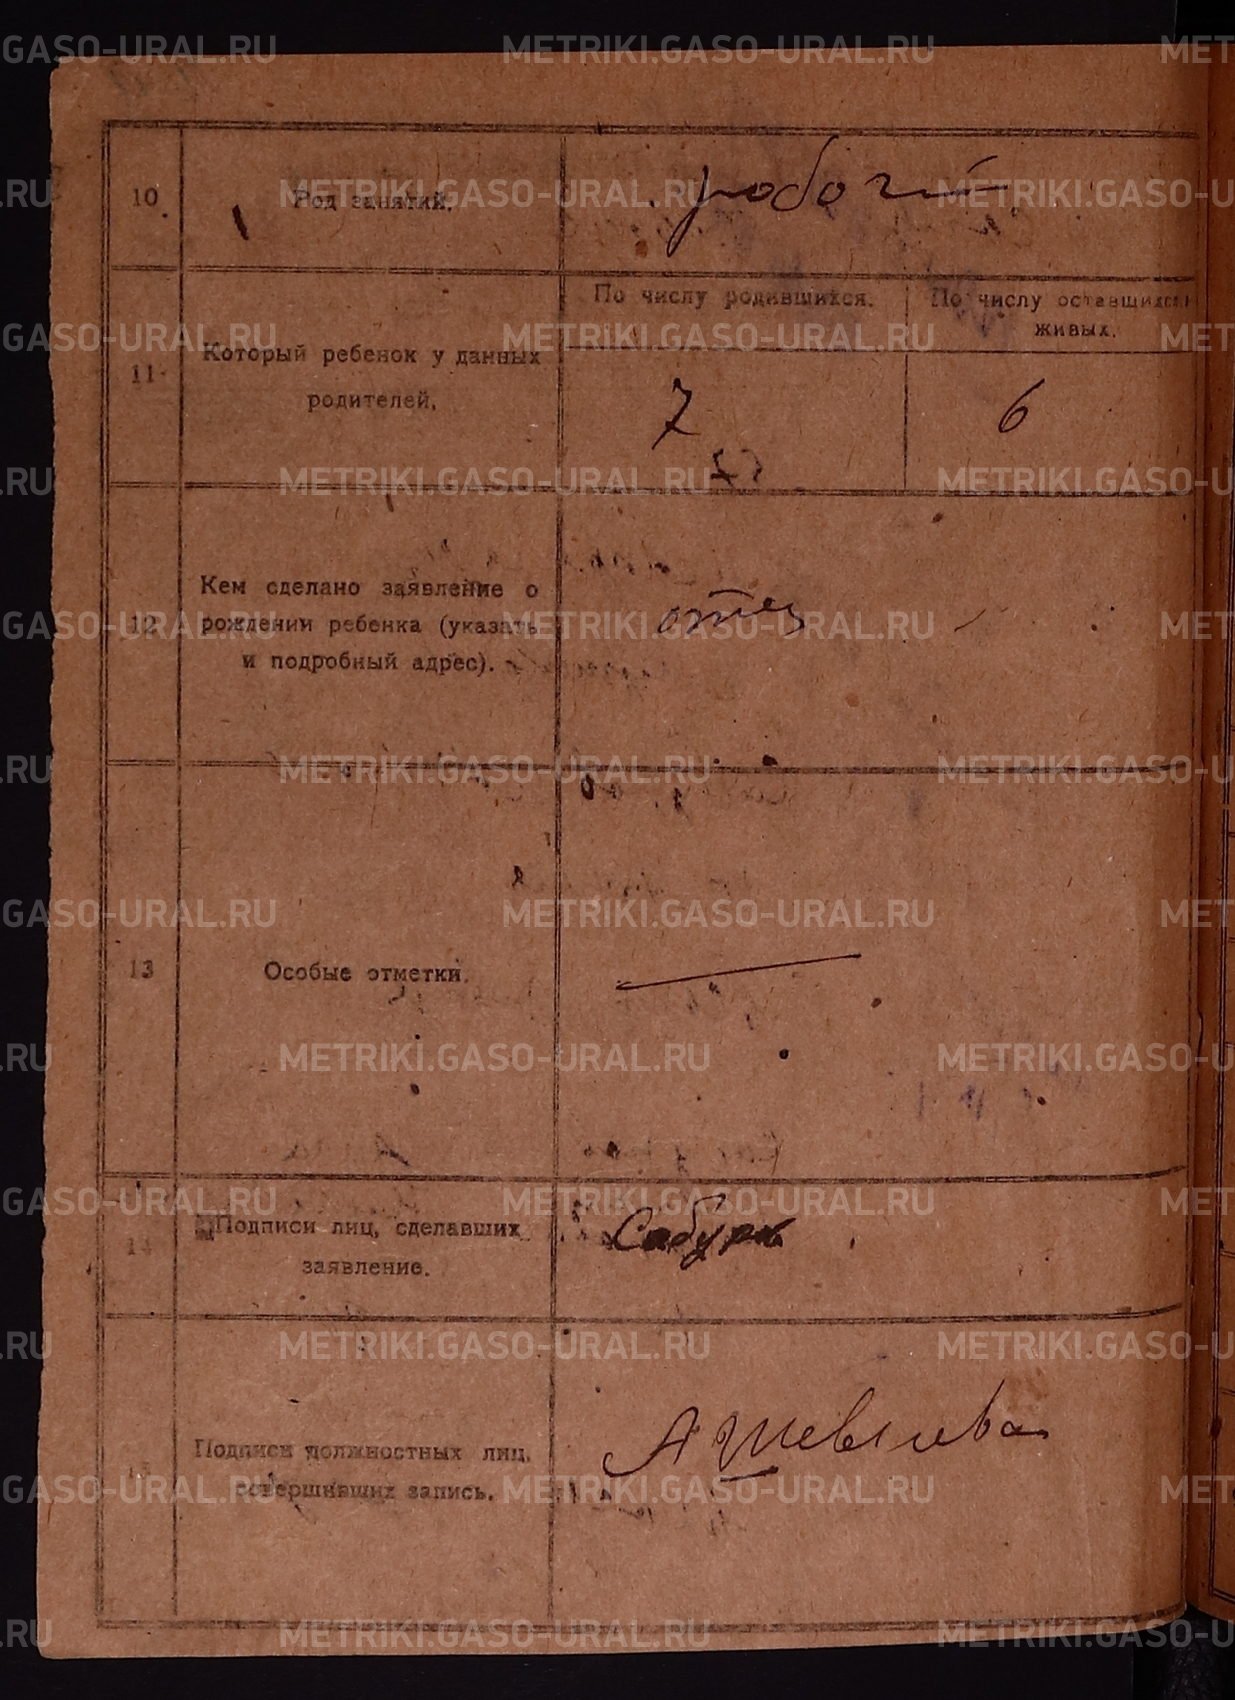 METRIKI.GASO-URAL.RU
10. Род занятий. рабочий
11. Который ребенок у данных
родителей.
По числу родившихся. По числу оставшихся
живых.
7 6
12 Кем сделано заявление о
рождении ребенка (указать
и подробный адрес).
отец
13 Особые отметки.
14 Подписи лиц, сделавших
заявление.
Сабуро
15 Подписи должностных лиц,
совершивших запись.